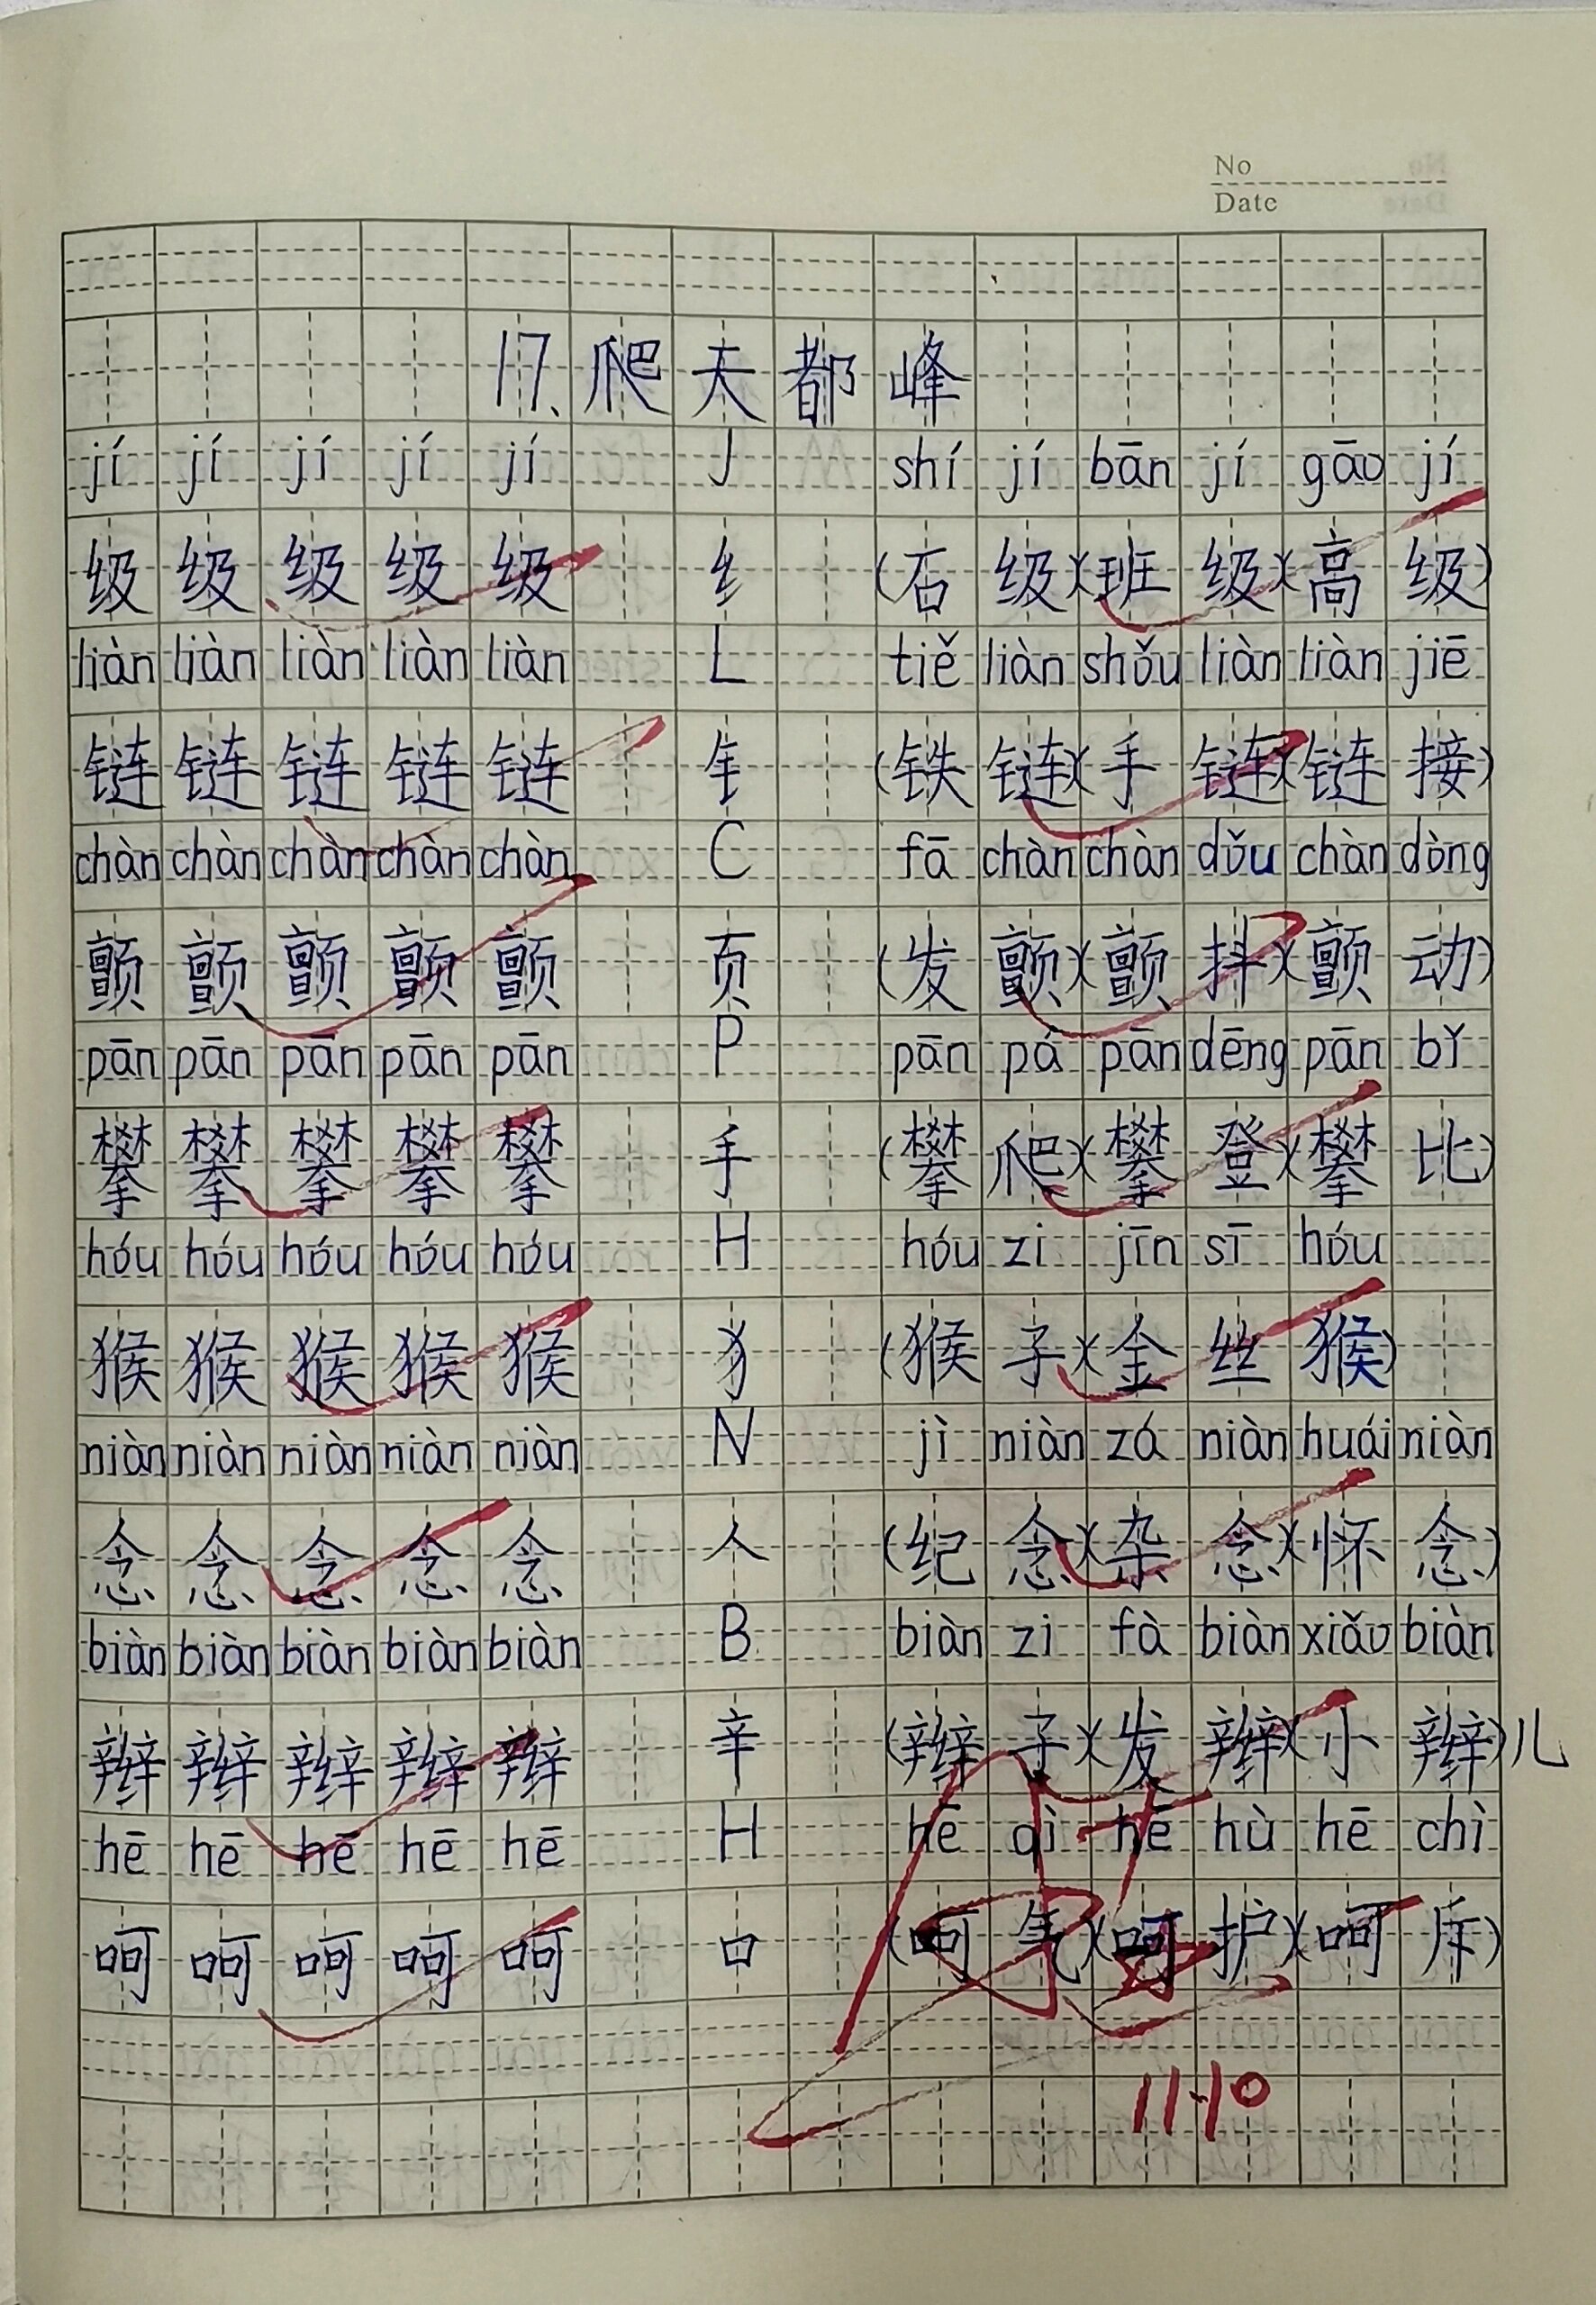 No
Date
17、爬天都峰
jí jí jí jí jí J shí jí bān jí gāo jí
级 级 级 级 级 纟 (石级)(班级)(高级)
liàn liàn liàn liàn liàn L tiě liàn shǒu liàn liàn jiē
链 链 链 链 链 钅 (铁链)(手链)(链接)
chàn chàn chàn chàn chàn C fā chàn chàn dǒu chàn dòng
颤 颤 颤 颤 颤 页 (发颤)(颤抖)(颤动)
pān pān pān pān pān P pān pá pān dēng pān bǐ
攀 攀 攀 攀 攀 手 (攀爬)(攀登)(攀比)
hóu hóu hóu hóu hóu H hóu zi jīn sī hóu
猴 猴 猴 猴 猴 犭 (猴子)(金丝猴)
niàn niàn niàn niàn niàn N jì niàn zá niàn huái niàn
念 念 念 念 念 人 (纪念)(杂念)(怀念)
biàn biàn biàn biàn biàn B biàn zi fà biàn xiǎo biàn
辫 辫 辫 辫 辫 辛 (辫子)(发辫)(小辫)儿
hē hē hē hē hē H hē qì hē hù hē chì
呵 呵 呵 呵 呵 口 (呵气)(呵护)(呵斥)
11.10